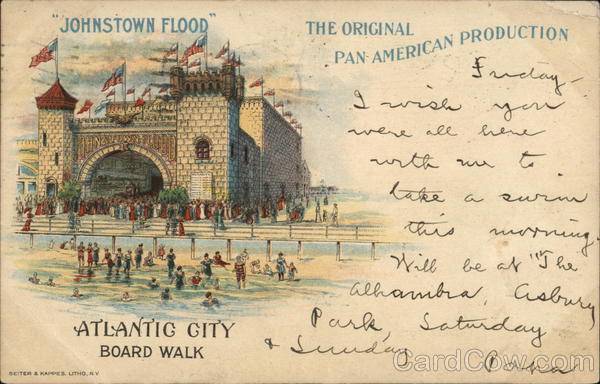 "JOHNSTOWN FLOOD"
THE ORIGINAL
PAN-AMERICAN PRODUCTION
Friday -
I wish you
were all here
with me to
take a swim
this morning.
Will be at "The
Alhambra, Asbury
Park, Saturday
& Sunday
Papa
JOHNSTOWN
ATLANTIC CITY
BOARD WALK
REITER & KAPPES, LITHO, N.Y.
CardCow.com